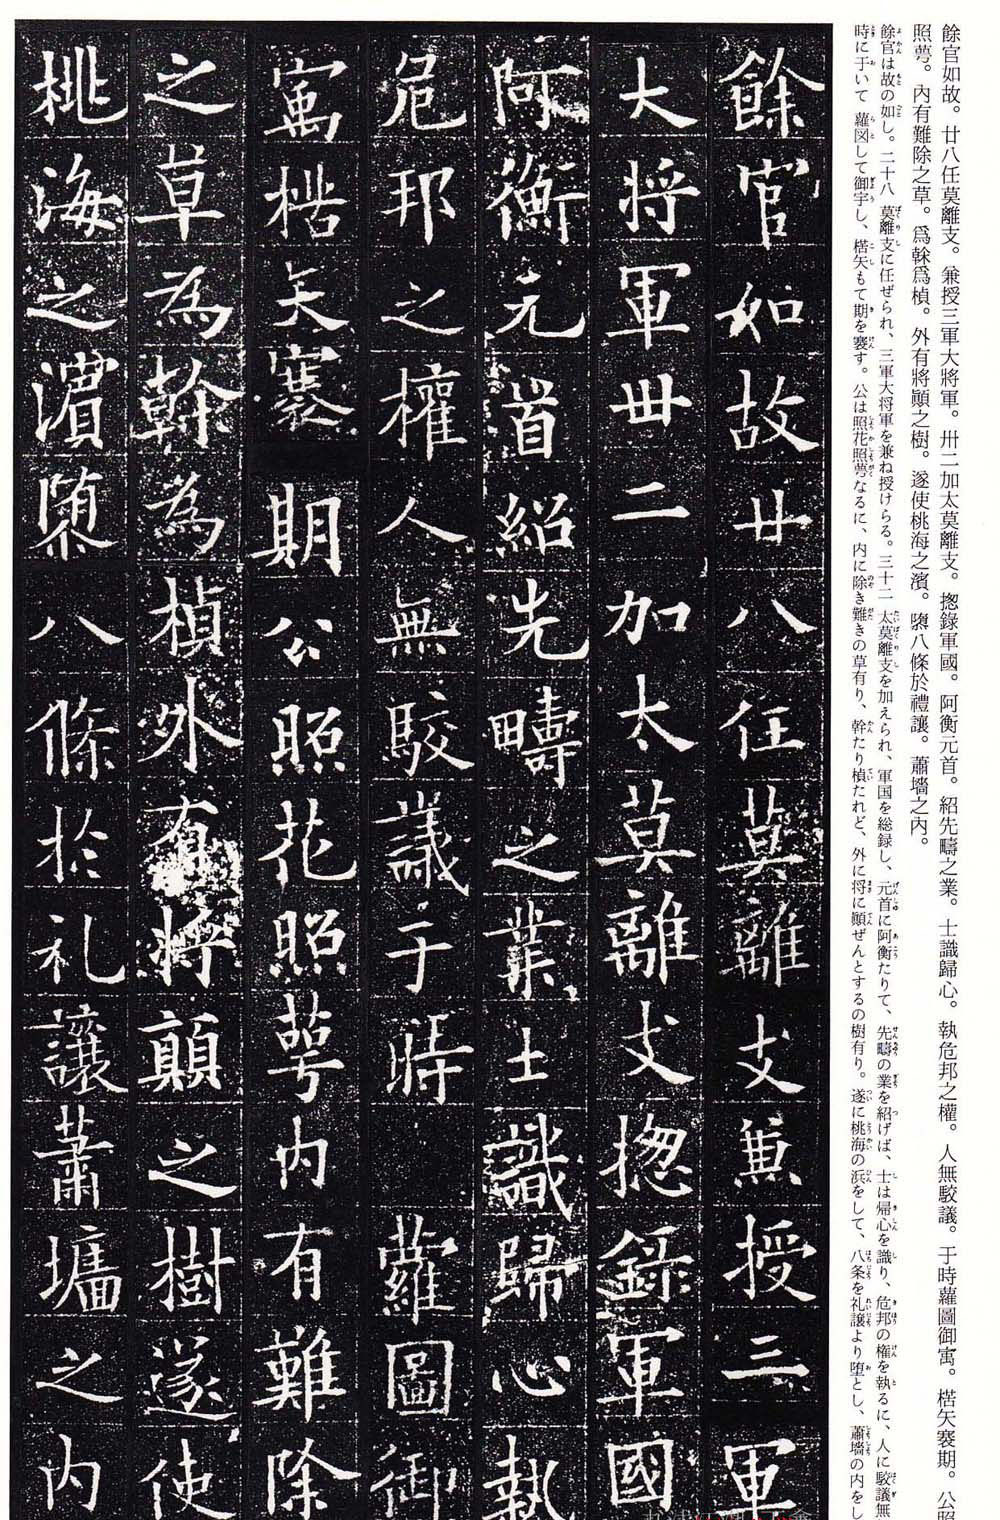 餘官如故。廿八任莫離支。兼授三軍大將軍。卅二加太莫離支。揔錄軍國。阿衡元首。紹先疇之業。士識歸心。執危邦之權。人無駮議。于時蘿圖御寓。楛矢褰期。公照
照萼。內有難除之草。爲榦爲楨。外有將顚之樹。遂使桃海之濱。隳八條於禮讓。蕭墻之内。
餘官は故の如し。二十八 莫離支に任ぜられ、三軍大将軍を兼ね授けらる。三十二 太莫離支を加えられ、軍国を総録し、元首に阿衡たりて、先疇の業を紹げば、士は帰心を識り、危邦の権を執るに、人に駮議無
時に于いて 蘿図して御宇し、楛矢もて期を褰す。公は照花照萼なるに、内に除き難きの草有り、幹たり楨たれど、外に将に顚ぜんとするの樹有り。遂に桃海の浜をして、八条を礼譲より堕とし、蕭墻の内をし
餘官如故廿八任莫離支兼授三軍
大将軍卌二加太莫離支揔錄軍國
阿衡元首紹先疇之業士識歸心執
危邦之權人無駮議于時蘿圖御
寓楛矢褰期公照花照萼内有難除
之草為幹為楨外有將顛之樹遂使
桃海之濱隳八條於礼讓蕭墻之内